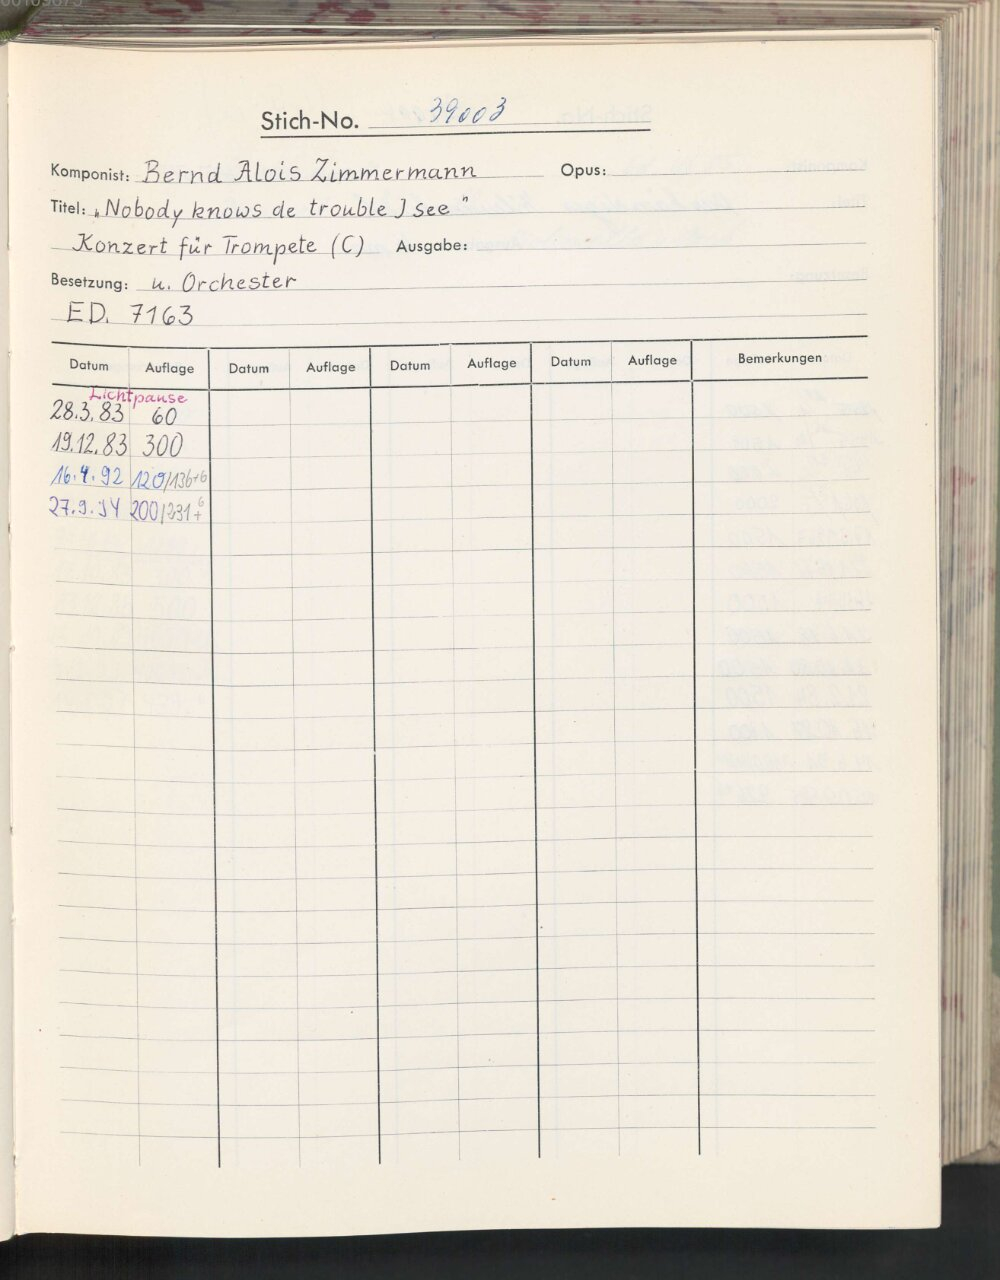 Stich-No. 39003
Komponist: Bernd Alois Zimmermann Opus:
Titel: „Nobody knows de trouble J see"
Konzert für Trompete (C) Ausgabe:
Besetzung: u. Orchester
ED. 7163
Datum Auflage Datum Auflage Datum Auflage Datum Auflage Bemerkungen
Lichtpause
28.3.83 60
19.12.83 300
16.4.92 120/136+6
27.9.94 200/231+6